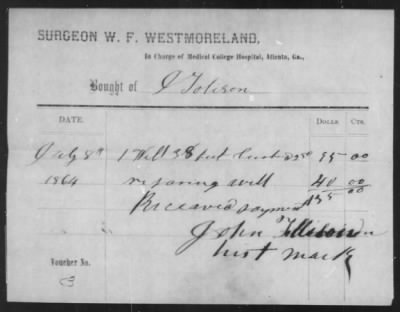 SURGEON W. F. WESTMORELAND,
In Charge of Medical College Hospital, Atlanta, Ga.,
Bought of J Tolison
DATE. DOLLS. CTS.
July 8th 1 Well 38 feet 95 00
1864 reparing well 40 00
Receaved payment 135 00
John Tillison
hist mark
Voucher No.
3